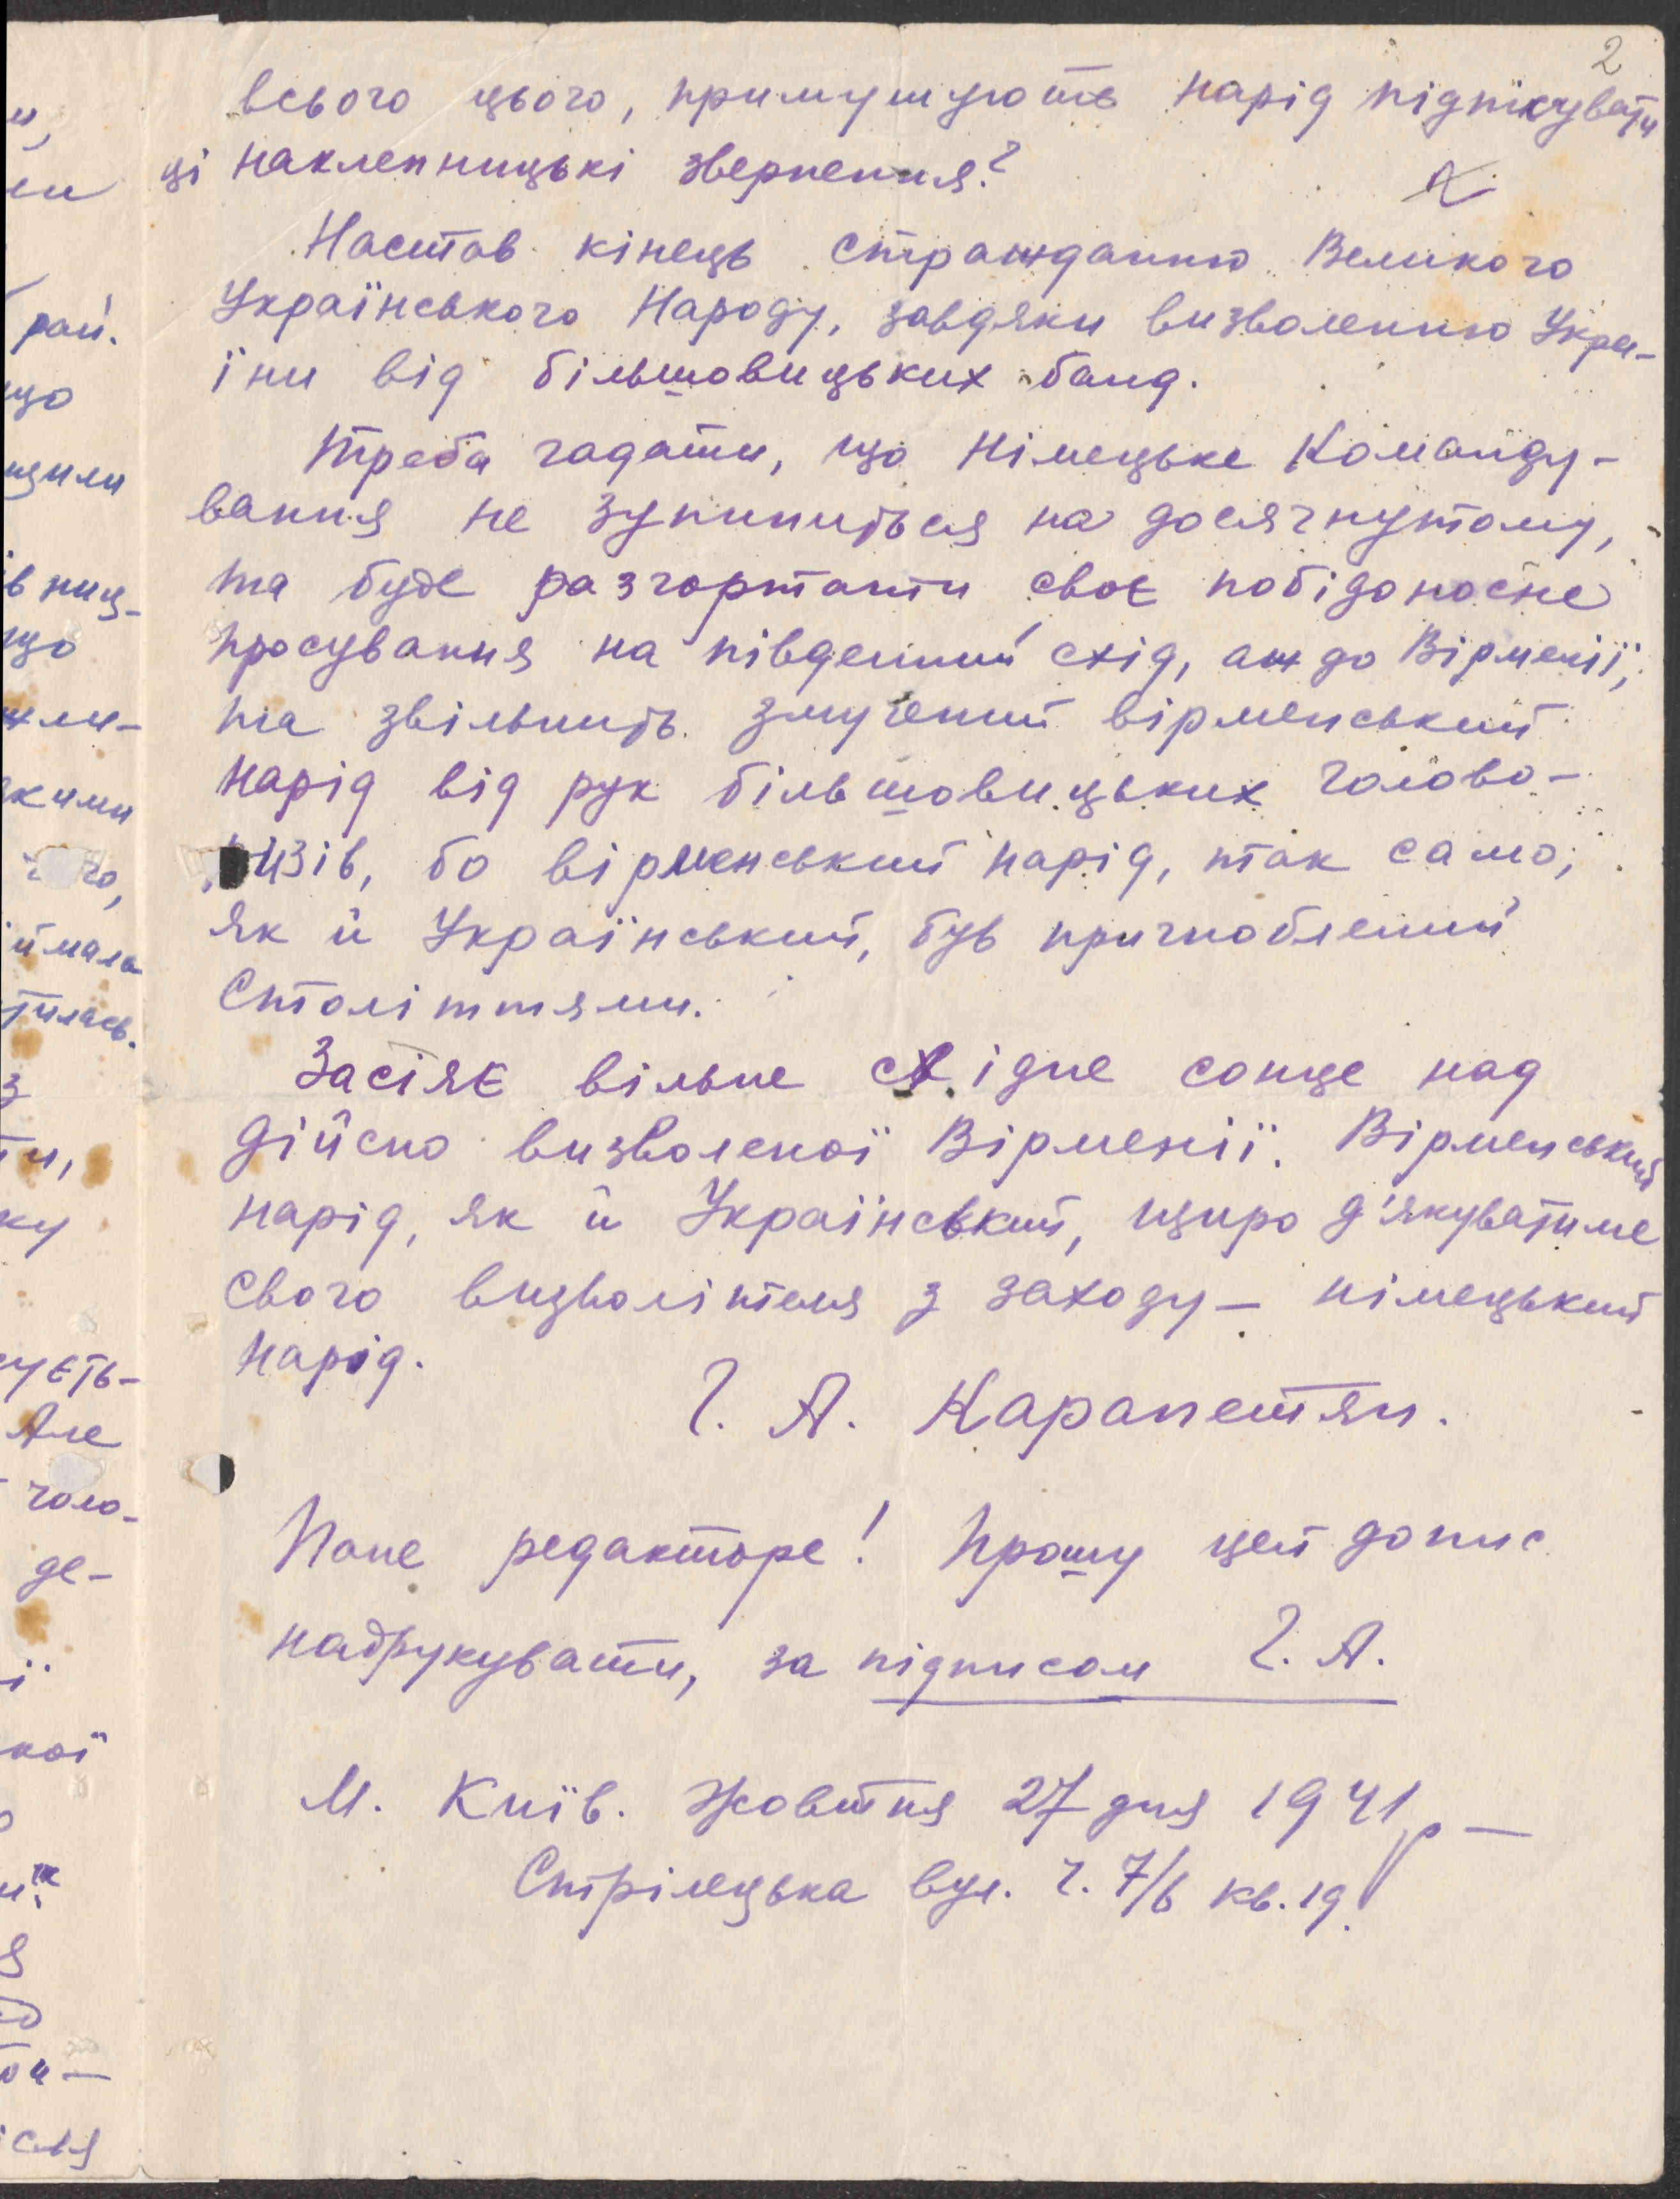 2
всього цього, примушують нарід підписувати
ці наклепницькі звернення?
Настав кінець стражданню Великого
Українського Народу, завдяки визволенню Укра-
їни від більшовицьких банд.
Треба гадати, що Німецьке Команду-
вання не зупиниться на досягнутому,
та буде разгортати своє побідоносне
просування на південний схід, аж до Вірменії,
та звільнить змучений вірменський
нарід від рук більшовицьких голово-
різів, бо вірменський нарід, так само,
як й Український, був пригноблений
Століттями.
Засіяє вільне східне сонце над
дійсно визволеної Вірменії. Вірменський
нарід, як й Український, щиро д'якуватиме
свого визволітеля з заходу — німецький
нарід.
Г. А. Карапетян.
Пане редакторе! Прошу цей допис
надрукувати, за підписом Г. А.
М. Київ. Жовтня 27 дня 1941 р —
Стрілецька вул. ч. 7/6 кв. 19.